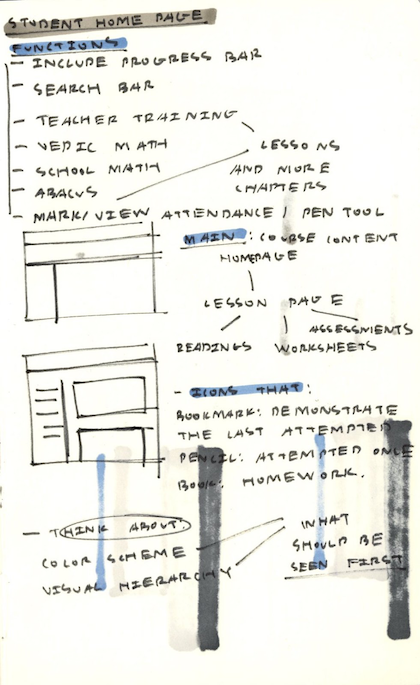 STUDENT HOME PAGE
FUNCTIONS
- INCLUDE PROGRESS BAR
- SEARCH BAR
- TEACHER TRAINING
- VEDIC MATH
- SCHOOL MATH
- ABACUS
LESSONS
AND MORE
CHAPTERS
- MARK/VIEW ATTENDANCE / PEN TOOL
MAIN: COURSE CONTENT
HOMEPAGE
LESSON PAGE
ASSESSMENTS
READINGS WORKSHEETS
- ICONS THAT:
BOOKMARK: DEMONSTRATE
THE LAST ATTEMPTED
PENCIL: ATTEMPTED ONCE
BOOK: HOMEWORK.
- THINK ABOUT:
COLOR SCHEME
VISUAL HIERARCHY
WHAT
SHOULD BE
SEEN FIRST